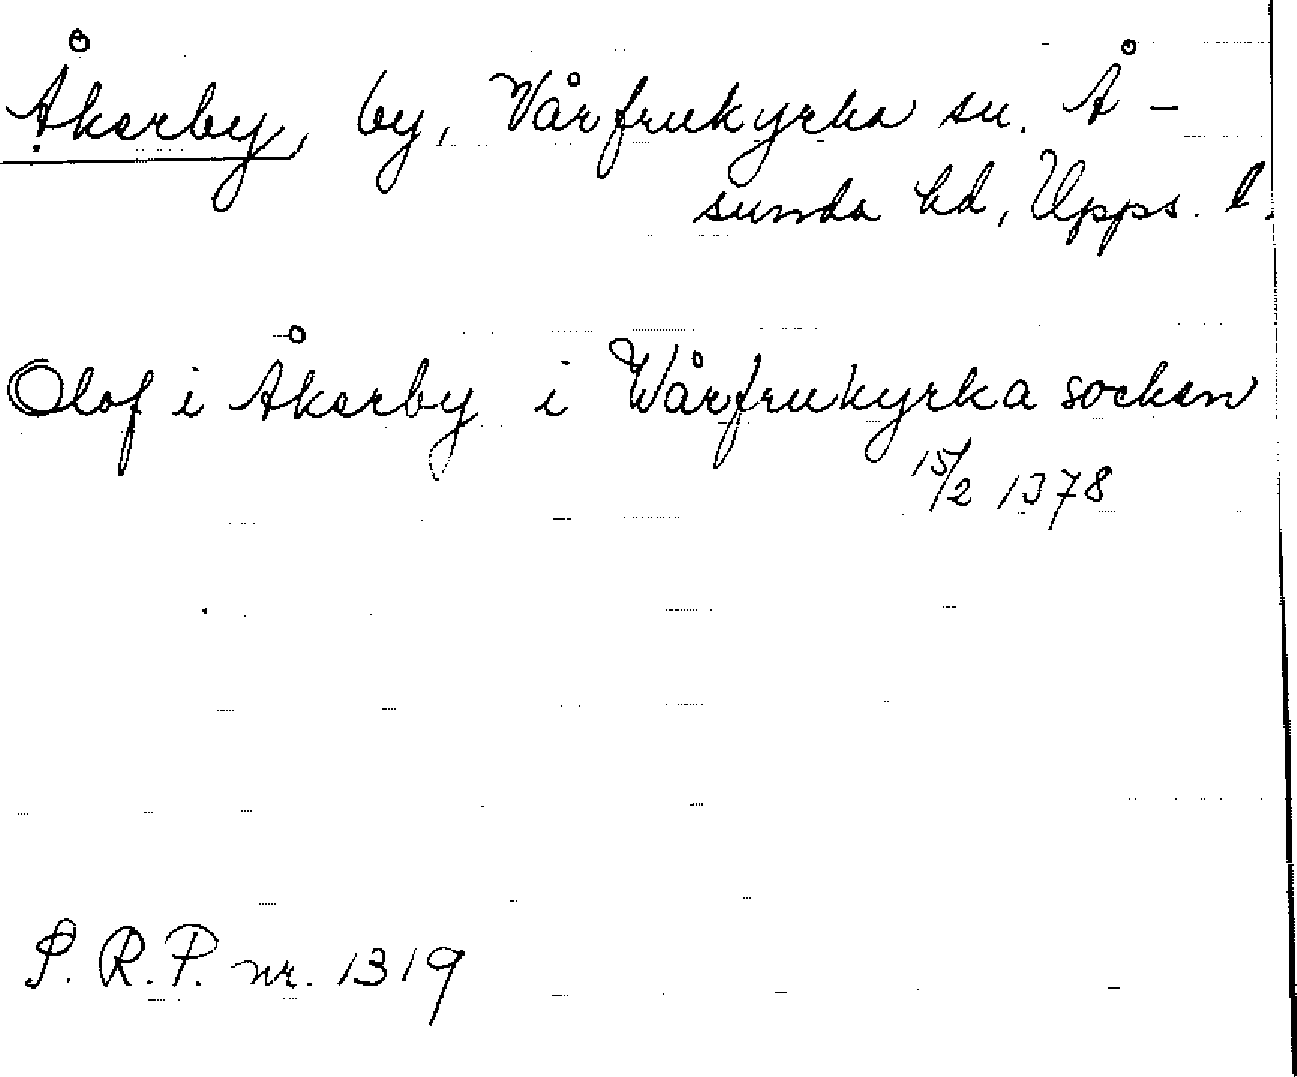 Åkerby, by, Vårfrukyrka sn. Å-
sunda hd, Upps. l.
Olof i Åkerby i Wårfrukyrka socken
15/2 1378
S. R. P. nr. 1319